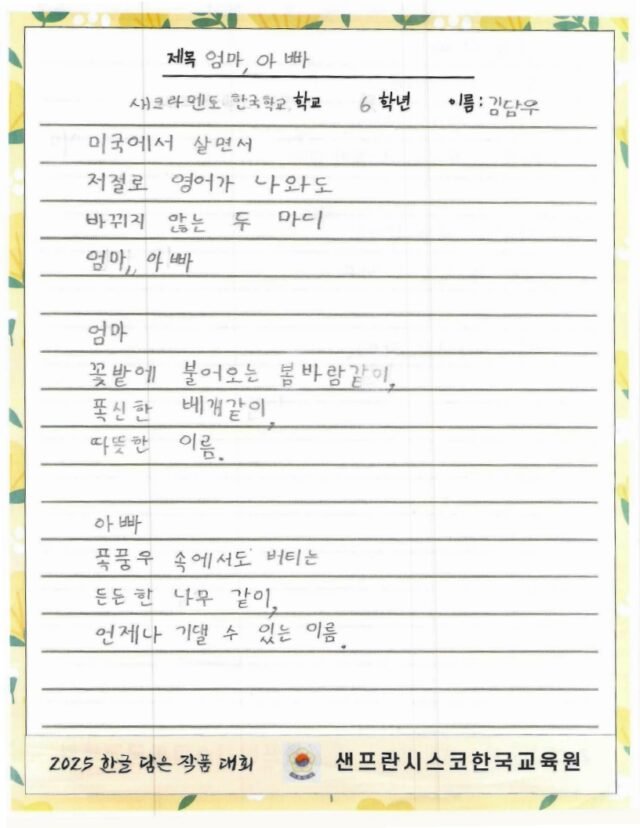 제목 엄마, 아빠
새크라멘토 한국학교 학교 6 학년 이름: 김담우
미국에서 살면서
저절로 영어가 나와도
바뀌지 않는 두 마디
엄마, 아빠
엄마
꽃밭에 불어오는 봄바람같이,
폭신한 베개같이,
따뜻한 이름.
아빠
폭풍우 속에서도 버티는
든든한 나무 같이,
언제나 기댈 수 있는 이름.
2025 한글 담은 작품 대회 샌프란시스코한국교육원